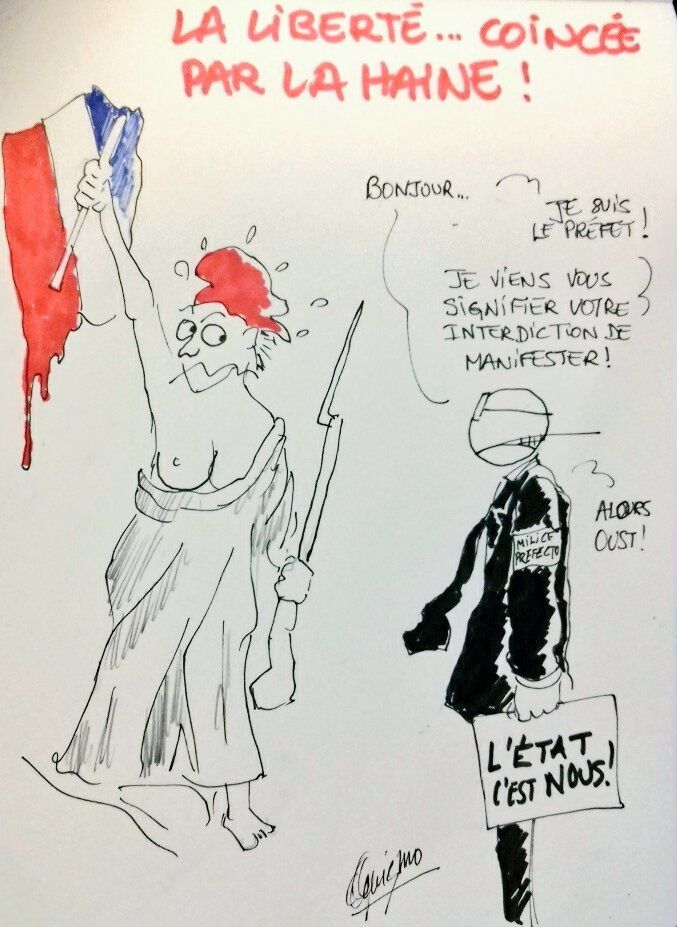 LA LIBERTÉ... COINCÉE
PAR LA HAINE !
BONJOUR...
JE SUIS
LE PRÉFET !
JE VIENS VOUS
SIGNIFIER VOTRE
INTERDICTION DE
MANIFESTER !
ALOURS
OUST !
MILICE
PREFECTO
L'ÉTAT
C'EST NOUS !